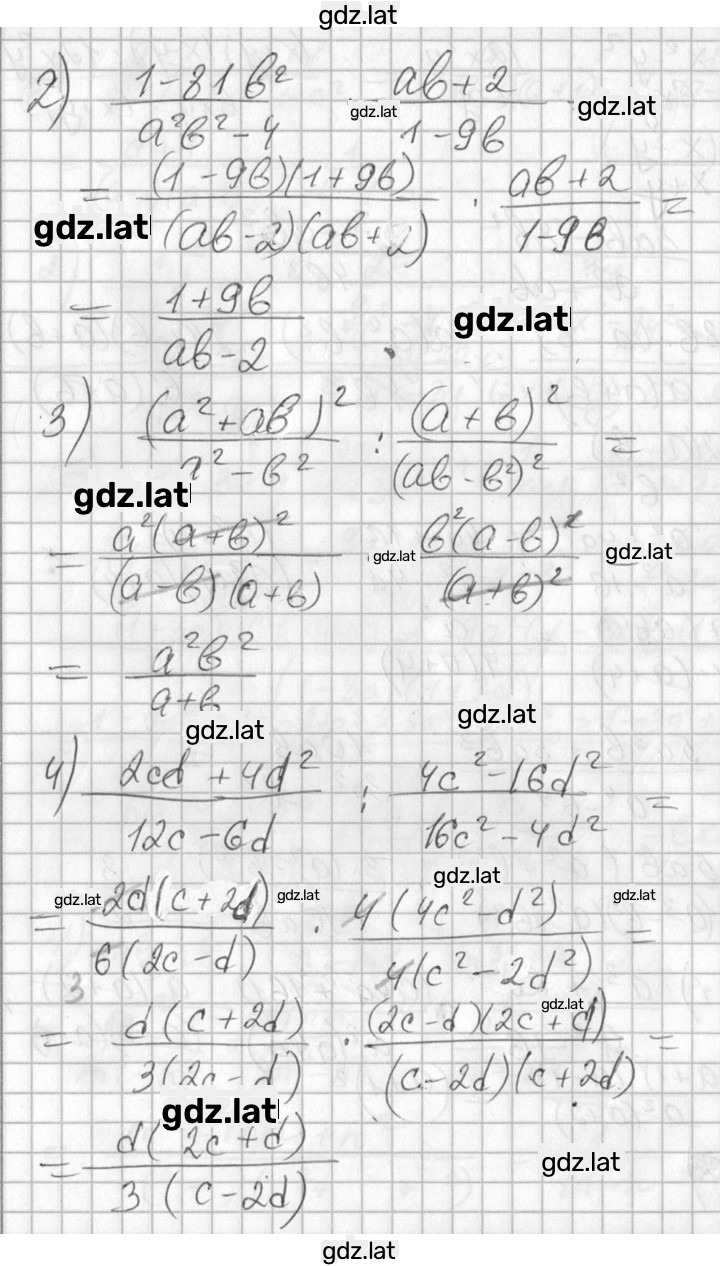 gdz.lat
2) (1-81b²)/(a²b²-4) gdz.lat (ab+2)/(1-9b) gdz.lat
= ((1-9b)(1+9b))/((ab-2)(ab+2)) · (ab+2)/(1-9b) =
gdz.lat
= (1+9b)/(ab-2)
gdz.lat
3) (a²+ab)²/(a²-b²) : (a+b)²/(ab-b²)² =
gdz.lat
= a²(a+b)²/((a-b)(a+b)) gdz.lat b²(a-b)²/(a+b)² gdz.lat
= a²b²/(a+b)
gdz.lat gdz.lat
4) (2cd+4d²)/(12c-6d) : (4c²-16d²)/(16c²-4d²) =
gdz.lat
= gdz.lat 2d(c+2d)/(6(2c-d)) gdz.lat · 4(4c²-d²)/(4(c²-2d²)) gdz.lat =
3
= d(c+2d)/(3(2c-d)) · ((2c-d)(2c+d))/((c-2d)(c+2d)) =
gdz.lat
gdz.lat
= d(2c+d)/(3(c-2d))
gdz.lat
gdz.lat